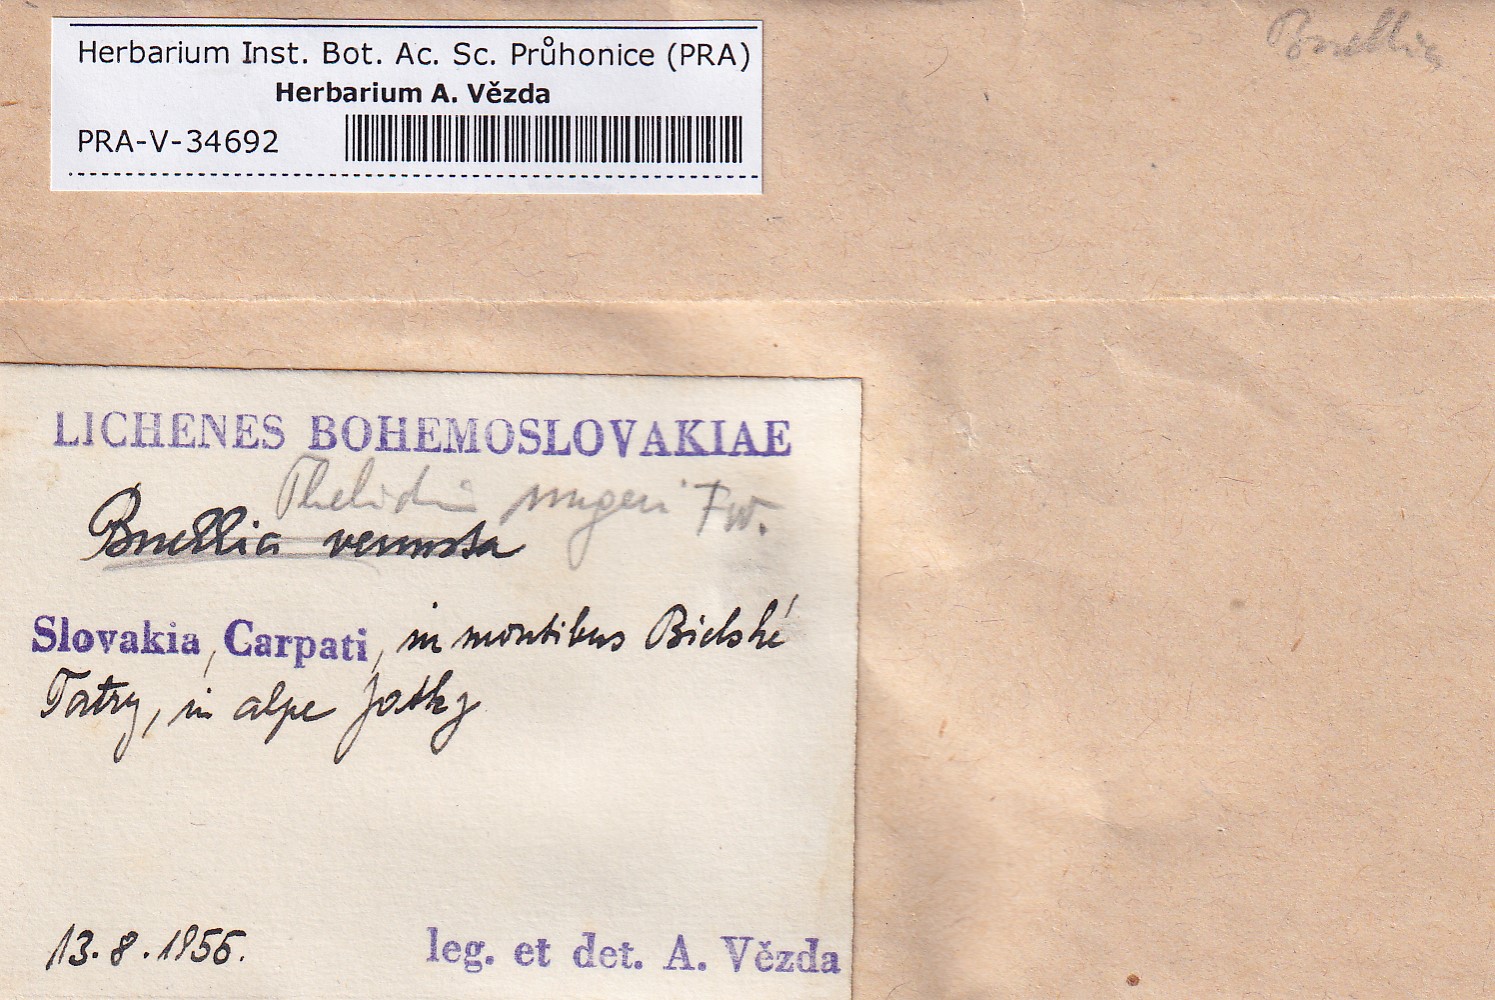 Herbarium Inst. Bot. Ac. Sc. Průhonice (PRA)
Herbarium A. Vězda
PRA-V-34692
Buellia
LICHENES BOHEMOSLOVAKIAE
Fw.
Buellia venusta
Slovakia, Carpati, in montibus Bielské
Tatry, in alpe Jatky
13.8.1955.
leg. et det. A. Vězda